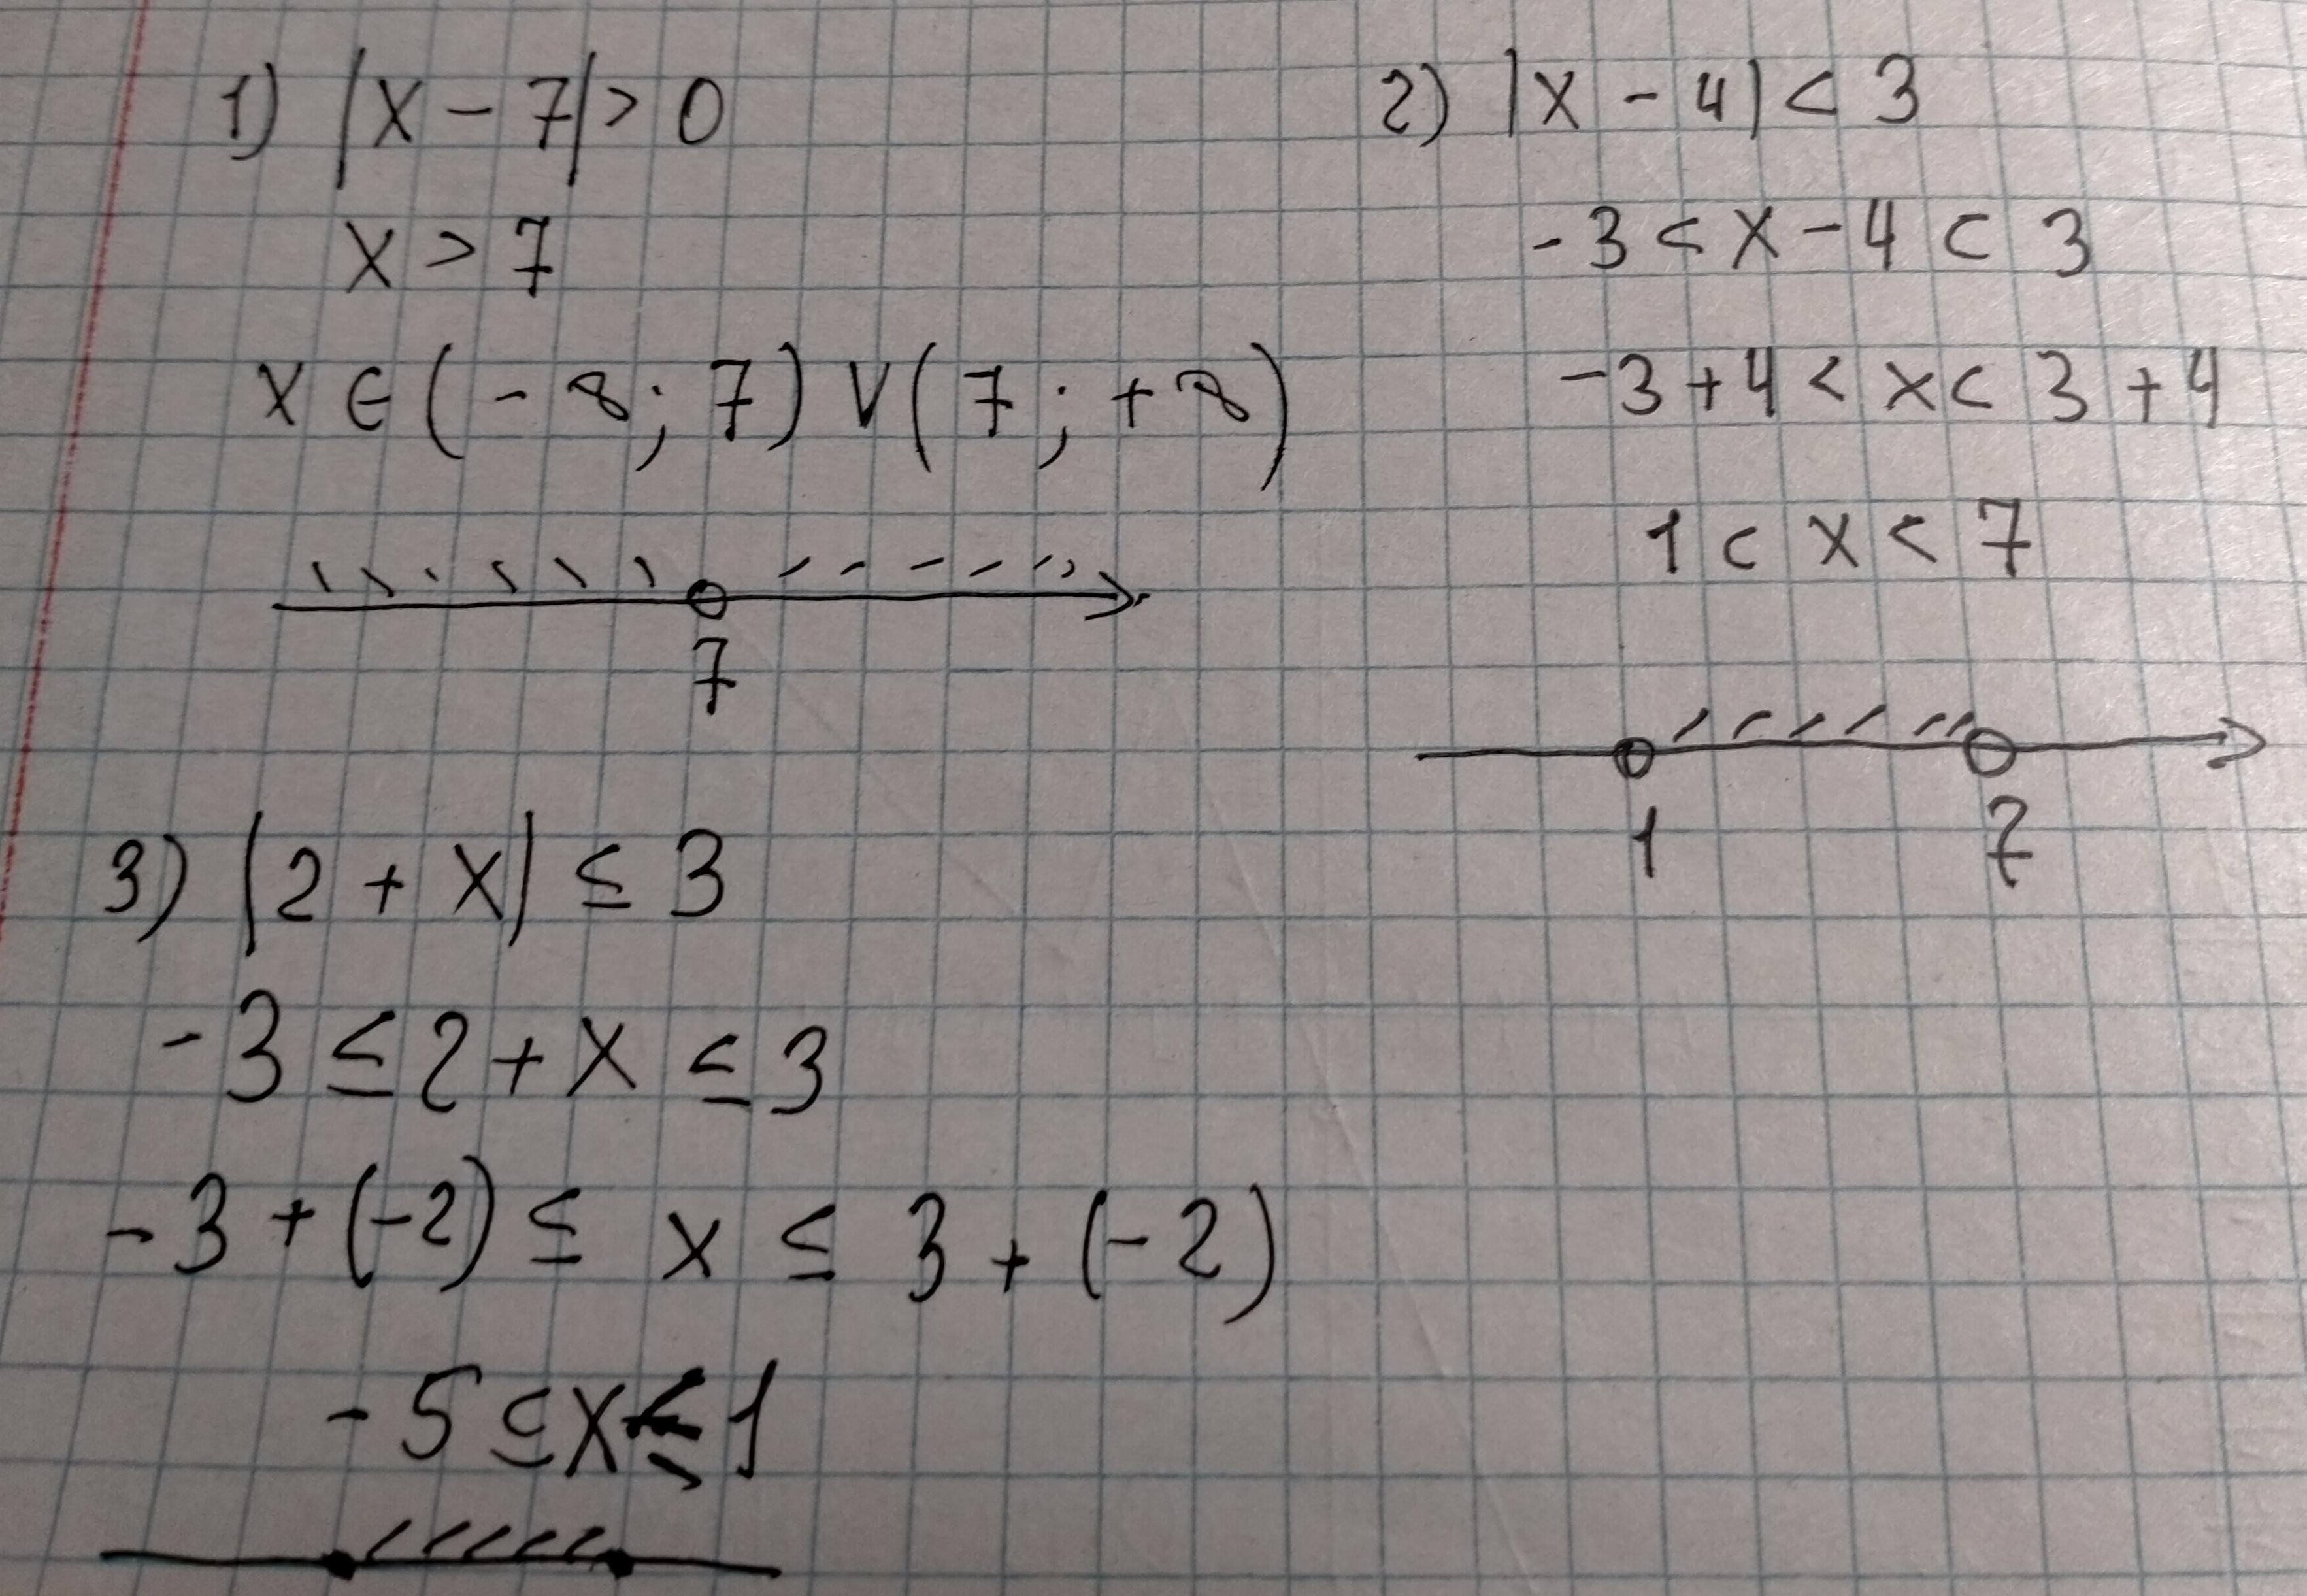 1) |x - 7| > 0
x > 7
x ∈ (-∞; 7) ∨ (7; +∞)
7
2) |x - 4| < 3
-3 < x - 4 < 3
-3 + 4 < x < 3 + 4
1 < x < 7
1 7
3) |2 + x| ≤ 3
-3 ≤ 2 + x ≤ 3
-3 + (-2) ≤ x ≤ 3 + (-2)
-5 ≤ x ≤ 1